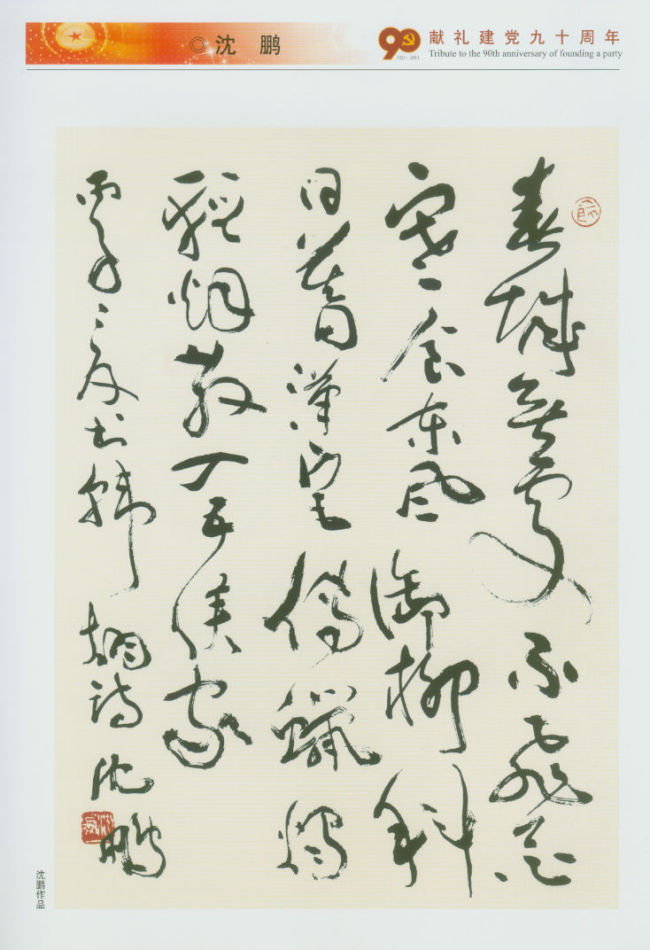 沈 鹏
90
1921-2011
献礼建党九十周年
Tribute to the 90th anniversary of founding a party
春城無處不飛花
寒食东风御柳斜
日暮漢宮傳蠟燭
輕烟散入五侯家
书韩翃诗 沈鹏
沈鹏作品